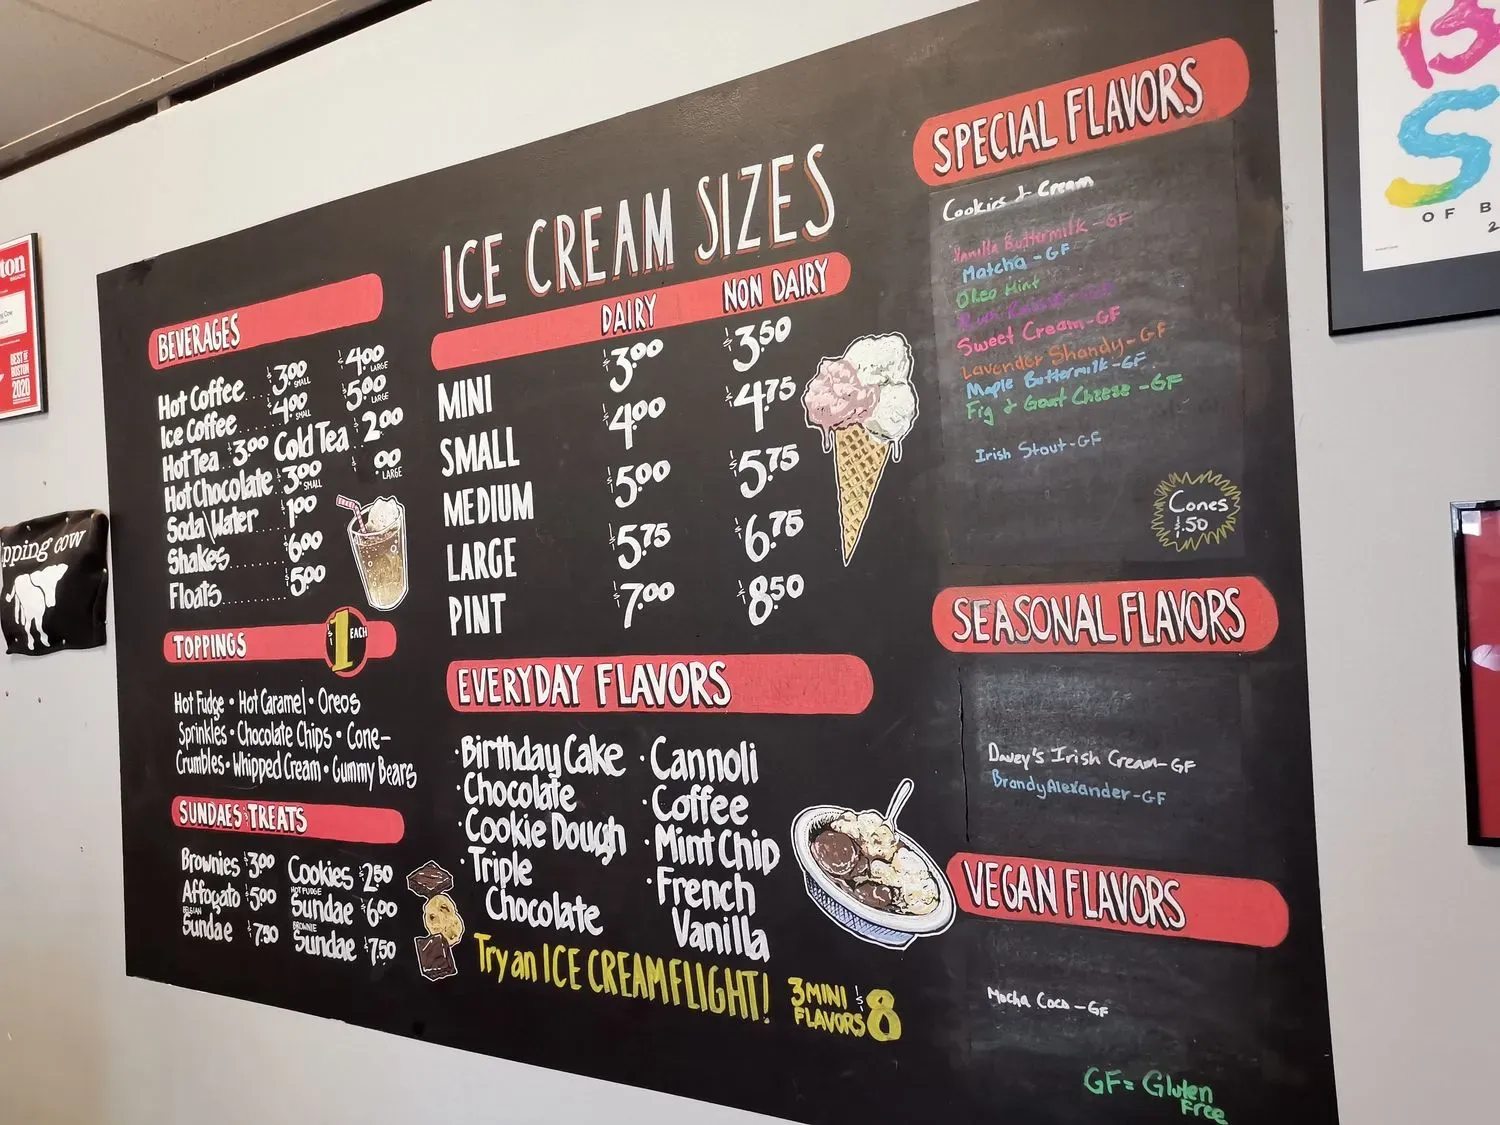 BEVERAGES
Hot Coffee $3.00 SMALL $4.00 LARGE
Ice Coffee $4.00 SMALL $5.00 LARGE
Hot Tea $3.00 Cold Tea $2.00
Hot Chocolate $3.00 SMALL $ .00 LARGE
Soda\Water $1.00
Shakes $6.00
Floats $5.00
TOPPINGS $1 EACH
Hot Fudge • Hot Caramel • Oreos
Sprinkles • Chocolate Chips • Cone-
Crumbles • Whipped Cream • Gummy Bears
SUNDAES & TREATS
Brownies $3.00 Cookies $2.50
Affogato $5.00 HOT FUDGE Sundae $6.00
BELGIAN Sundae $7.50 BROWNIE Sundae $7.50
ICE CREAM SIZES
DAIRY NON DAIRY
MINI $3.00 $3.50
SMALL $4.00 $4.75
MEDIUM $5.00 $5.75
LARGE $5.75 $6.75
PINT $7.00 $8.50
EVERYDAY FLAVORS
· Birthday Cake
· Chocolate
· Cookie Dough
· Triple
Chocolate
· Cannoli
· Coffee
· Mint Chip
· French
Vanilla
Try an ICE CREAM FLIGHT! 3 MINI FLAVORS $8
SPECIAL FLAVORS
Cookies & Cream
Vanilla Buttermilk-GF
Matcha-GF
Oreo Mint
Sweet Cream-GF
Lavender Shandy-GF
Maple Buttermilk-GF
Fig & Goat Cheese-GF
Irish Stout-GF
Cones
$.50
SEASONAL FLAVORS
Davey's Irish Cream-GF
Brandy Alexander-GF
VEGAN FLAVORS
Mocha Coco-GF
GF= Gluten
Free
pping cow
ton
BEST OF
BOSTON
2020
B
S
OF B
2